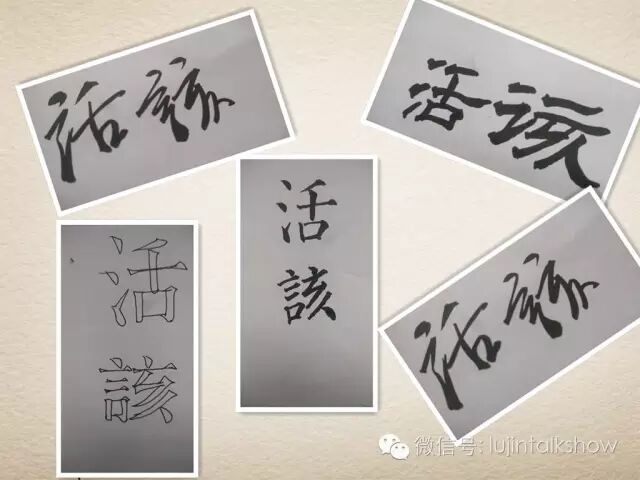 活該
活该
活
該
活
該
活該
微信号: lujintalkshow